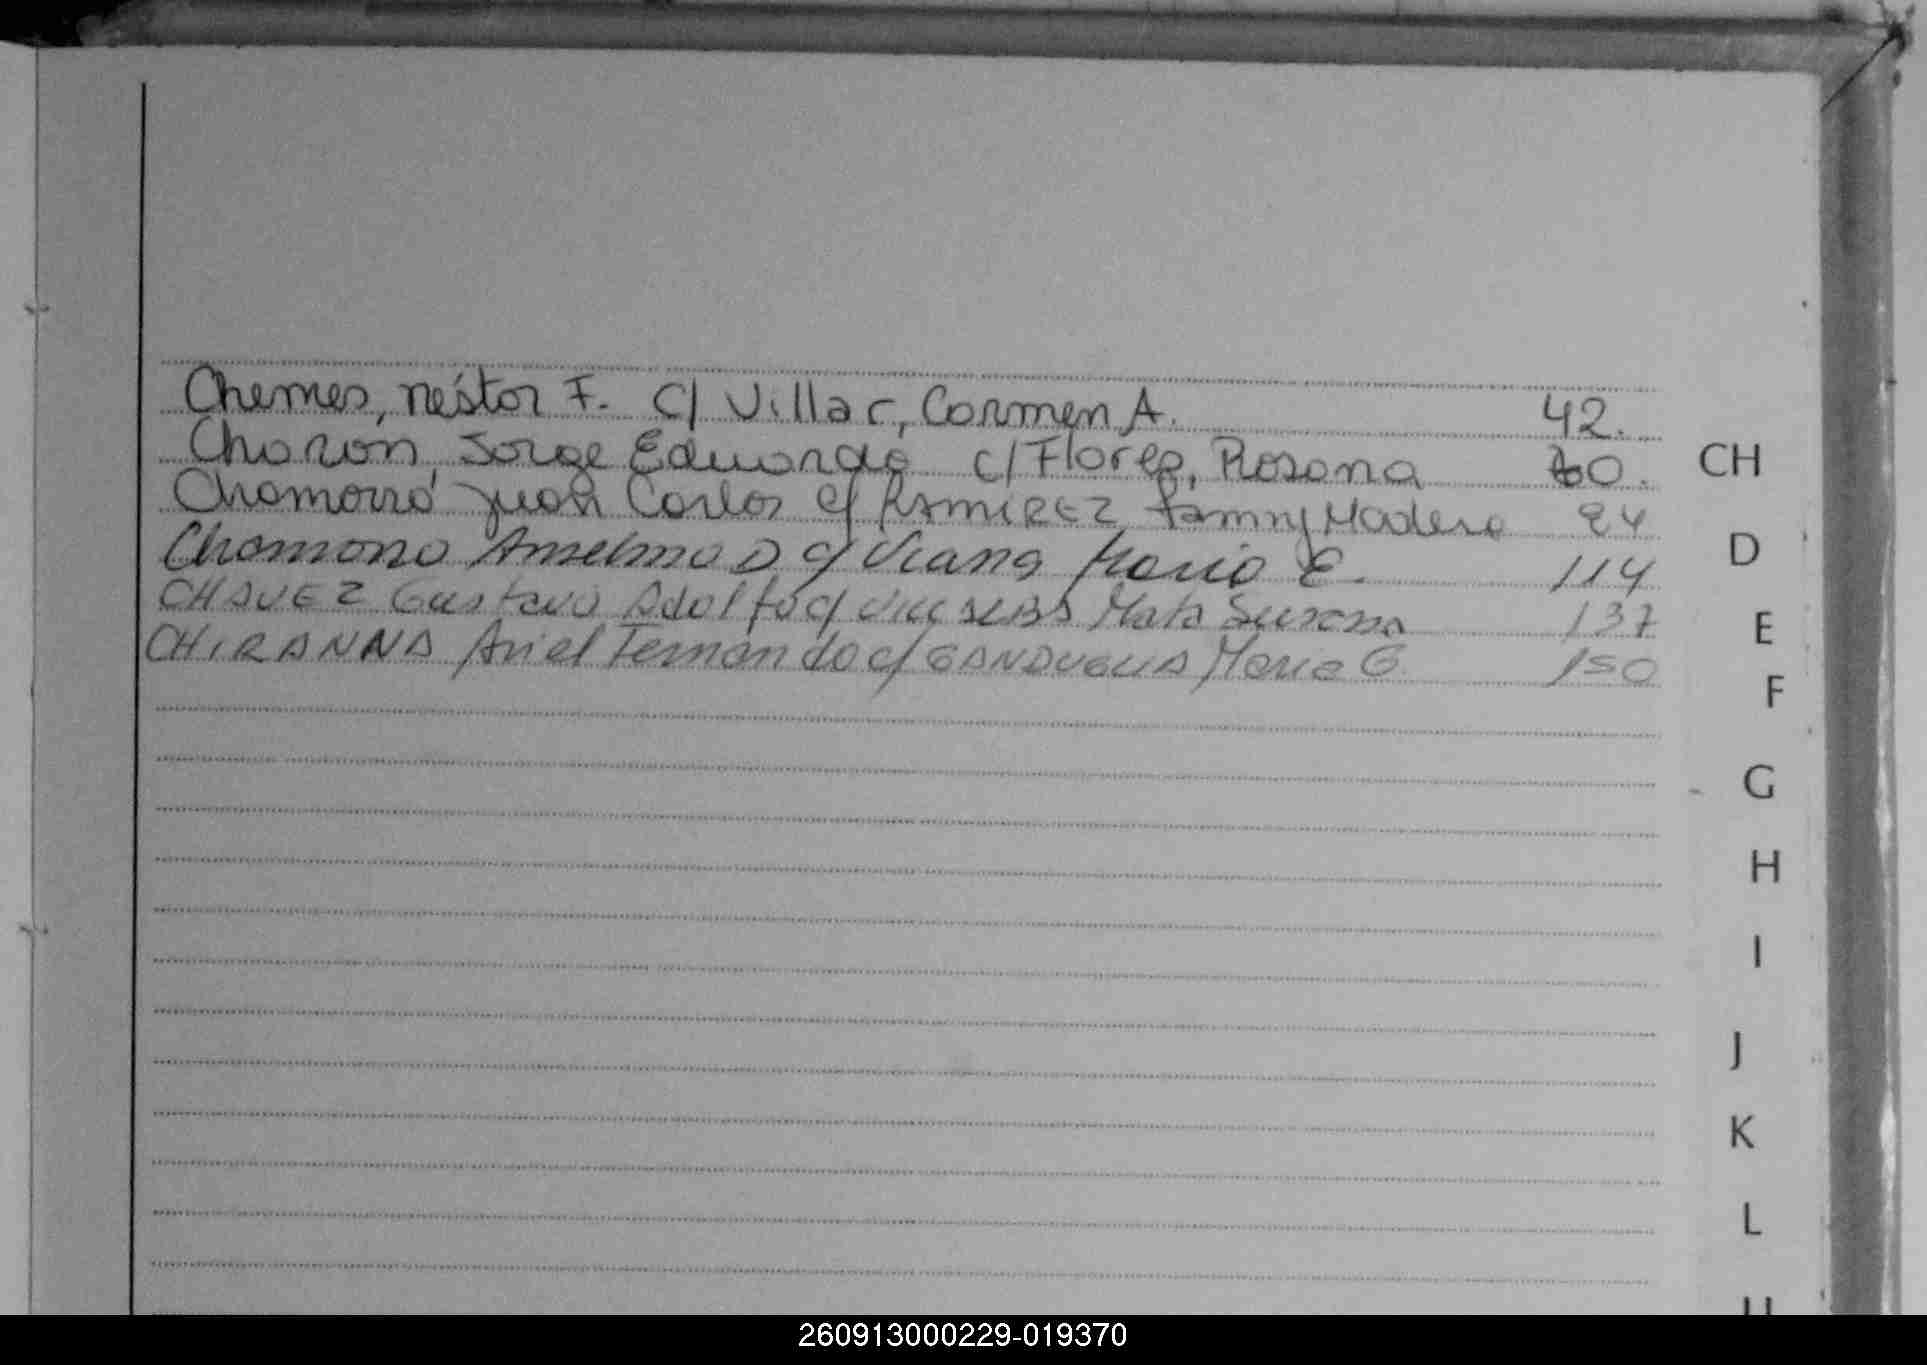 Chemes, Néstor F. c/ Villar, Carmen A. 42.
Charon, Jorge Eduardo c/ Flores, Rosana 0.
Chamorro Juan Carlos c/ RAMIREZ Fanny Madera
Chamorro Anselmo D c/ Viana María E. 114
CHAVEZ Gustavo Adolfo c/ Susana 137
CHIRANNA Ariel Fernando c/ María G. 150
CH
D
E
F
G
H
I
J
K
L
260913000229-019370